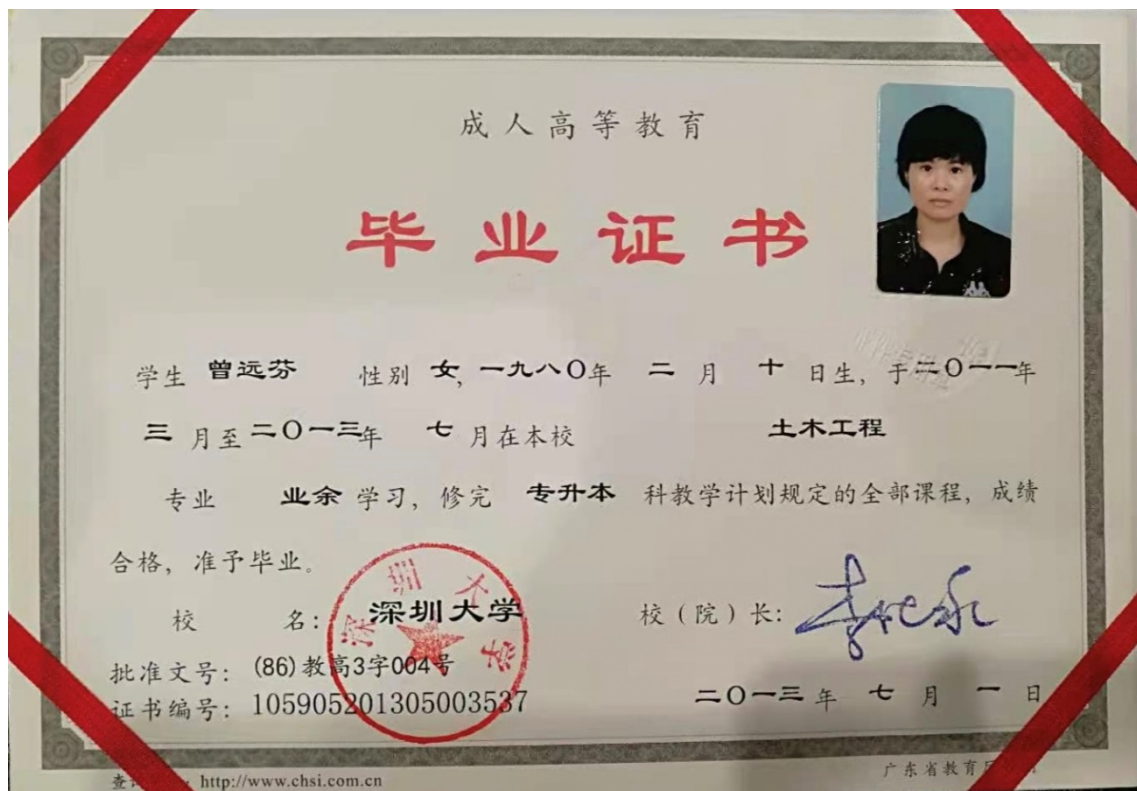 成人高等教育
毕业证书
学生 曾远芬 性别 女, 一九八〇年 二 月 十 日生, 于二〇一一年
三 月至二〇一三年 七 月在本校 土木工程
专业 业余 学习, 修完 专升本 科教学计划规定的全部课程, 成绩
合格, 准予毕业。
校 名: 深圳大学
深圳大学
校(院)长:
批准文号: (86)教高3字004号
证书编号: 105905201305003537
二〇一三年 七 月 一 日
http://www.chsi.com.cn
广东省教育